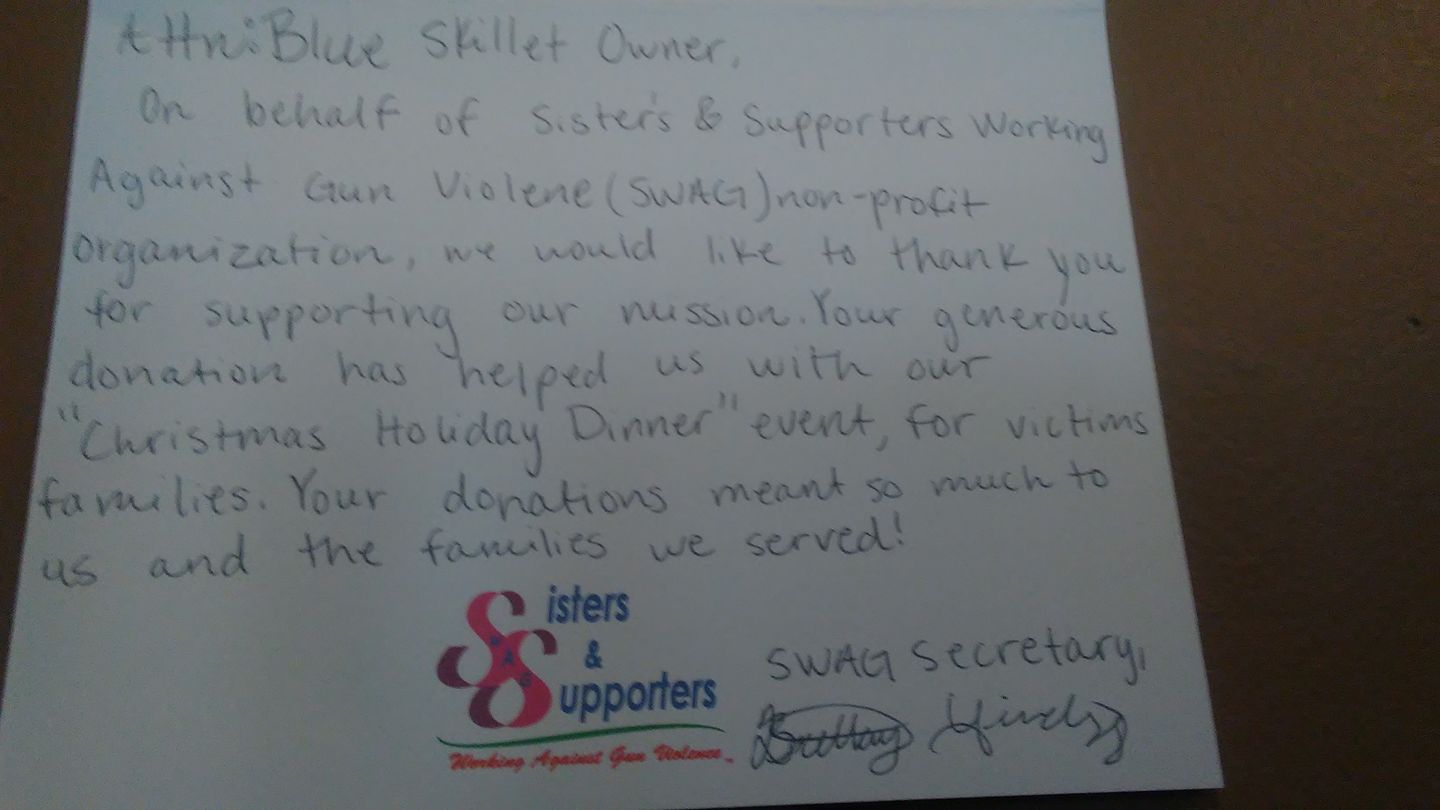 Attn: Blue Skillet Owner,
On behalf of Sister's & Supporters Working
Against Gun Violene (SWAG) non-profit
organization, we would like to thank you
for supporting our mission. Your generous
donation has helped us with our
"Christmas Holiday Dinner" event, for victims
families. Your donations meant so much to
us and the families we served!
Sisters
&
Supporters
Working Against Gun Violence
SWAG Secretary,